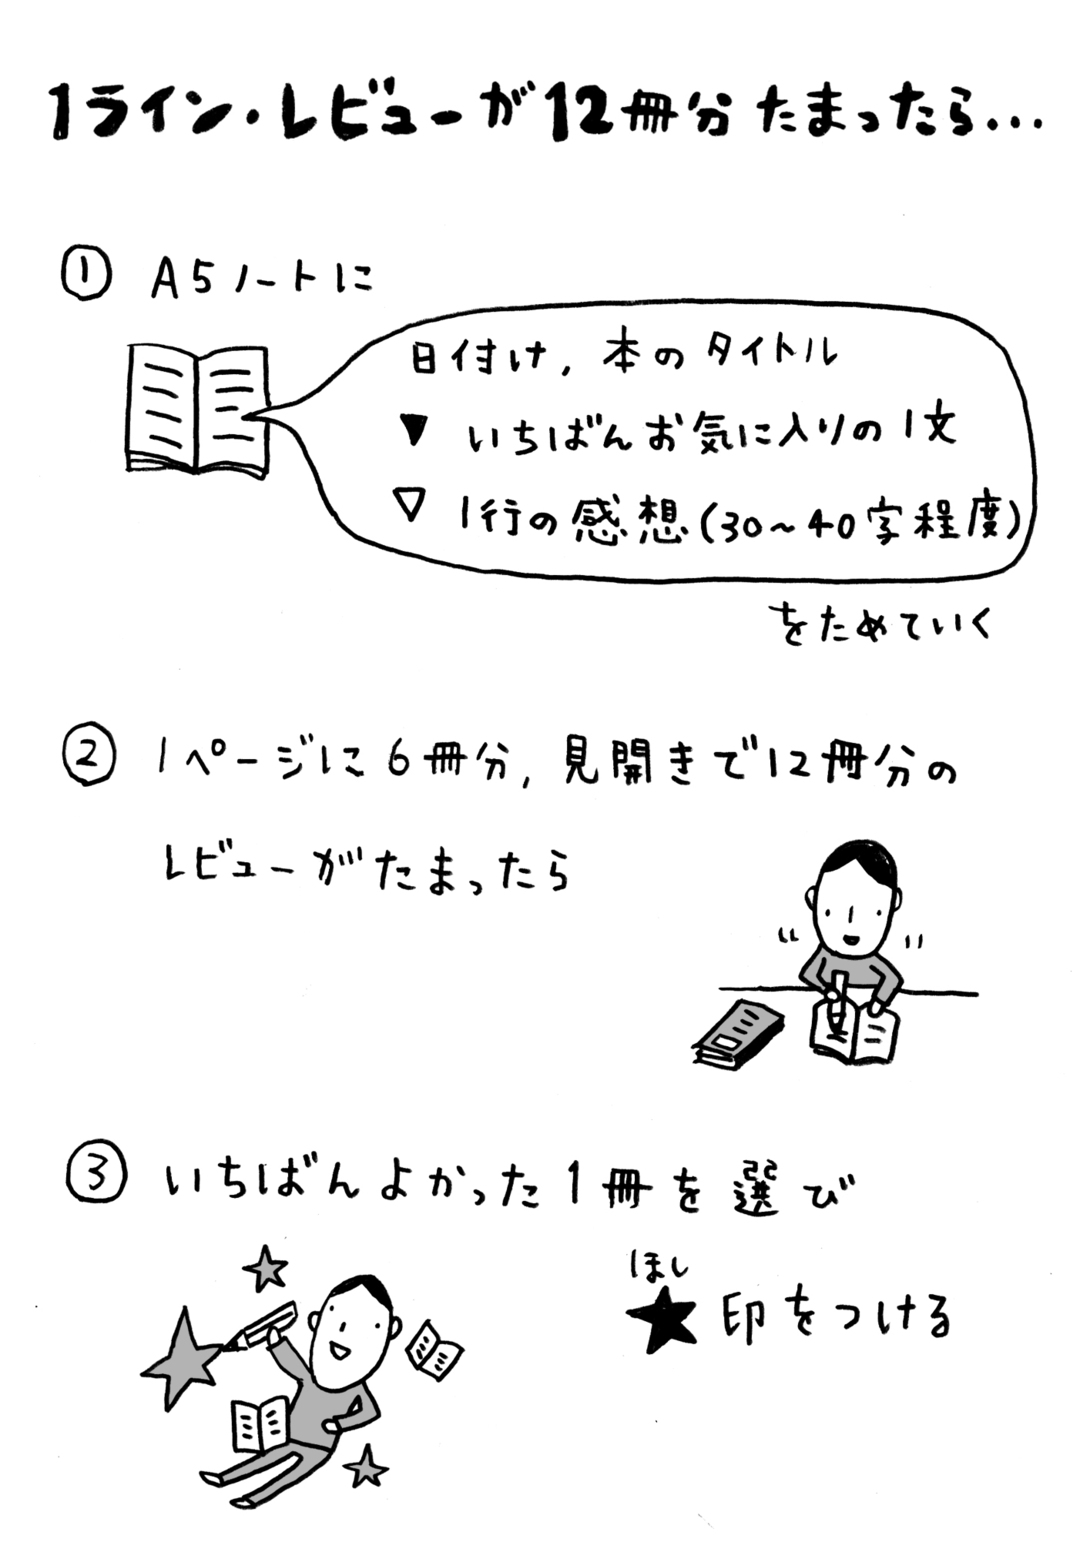 1ライン・レビューが12冊分たまったら…
① A5ノートに
日付け, 本のタイトル
▼ いちばんお気に入りの1文
▽ 1行の感想(30〜40字程度)
をためていく
② 1ページに6冊分, 見開きで12冊分の
レビューがたまったら
③ いちばんよかった1冊を選び
ほし
★印をつける